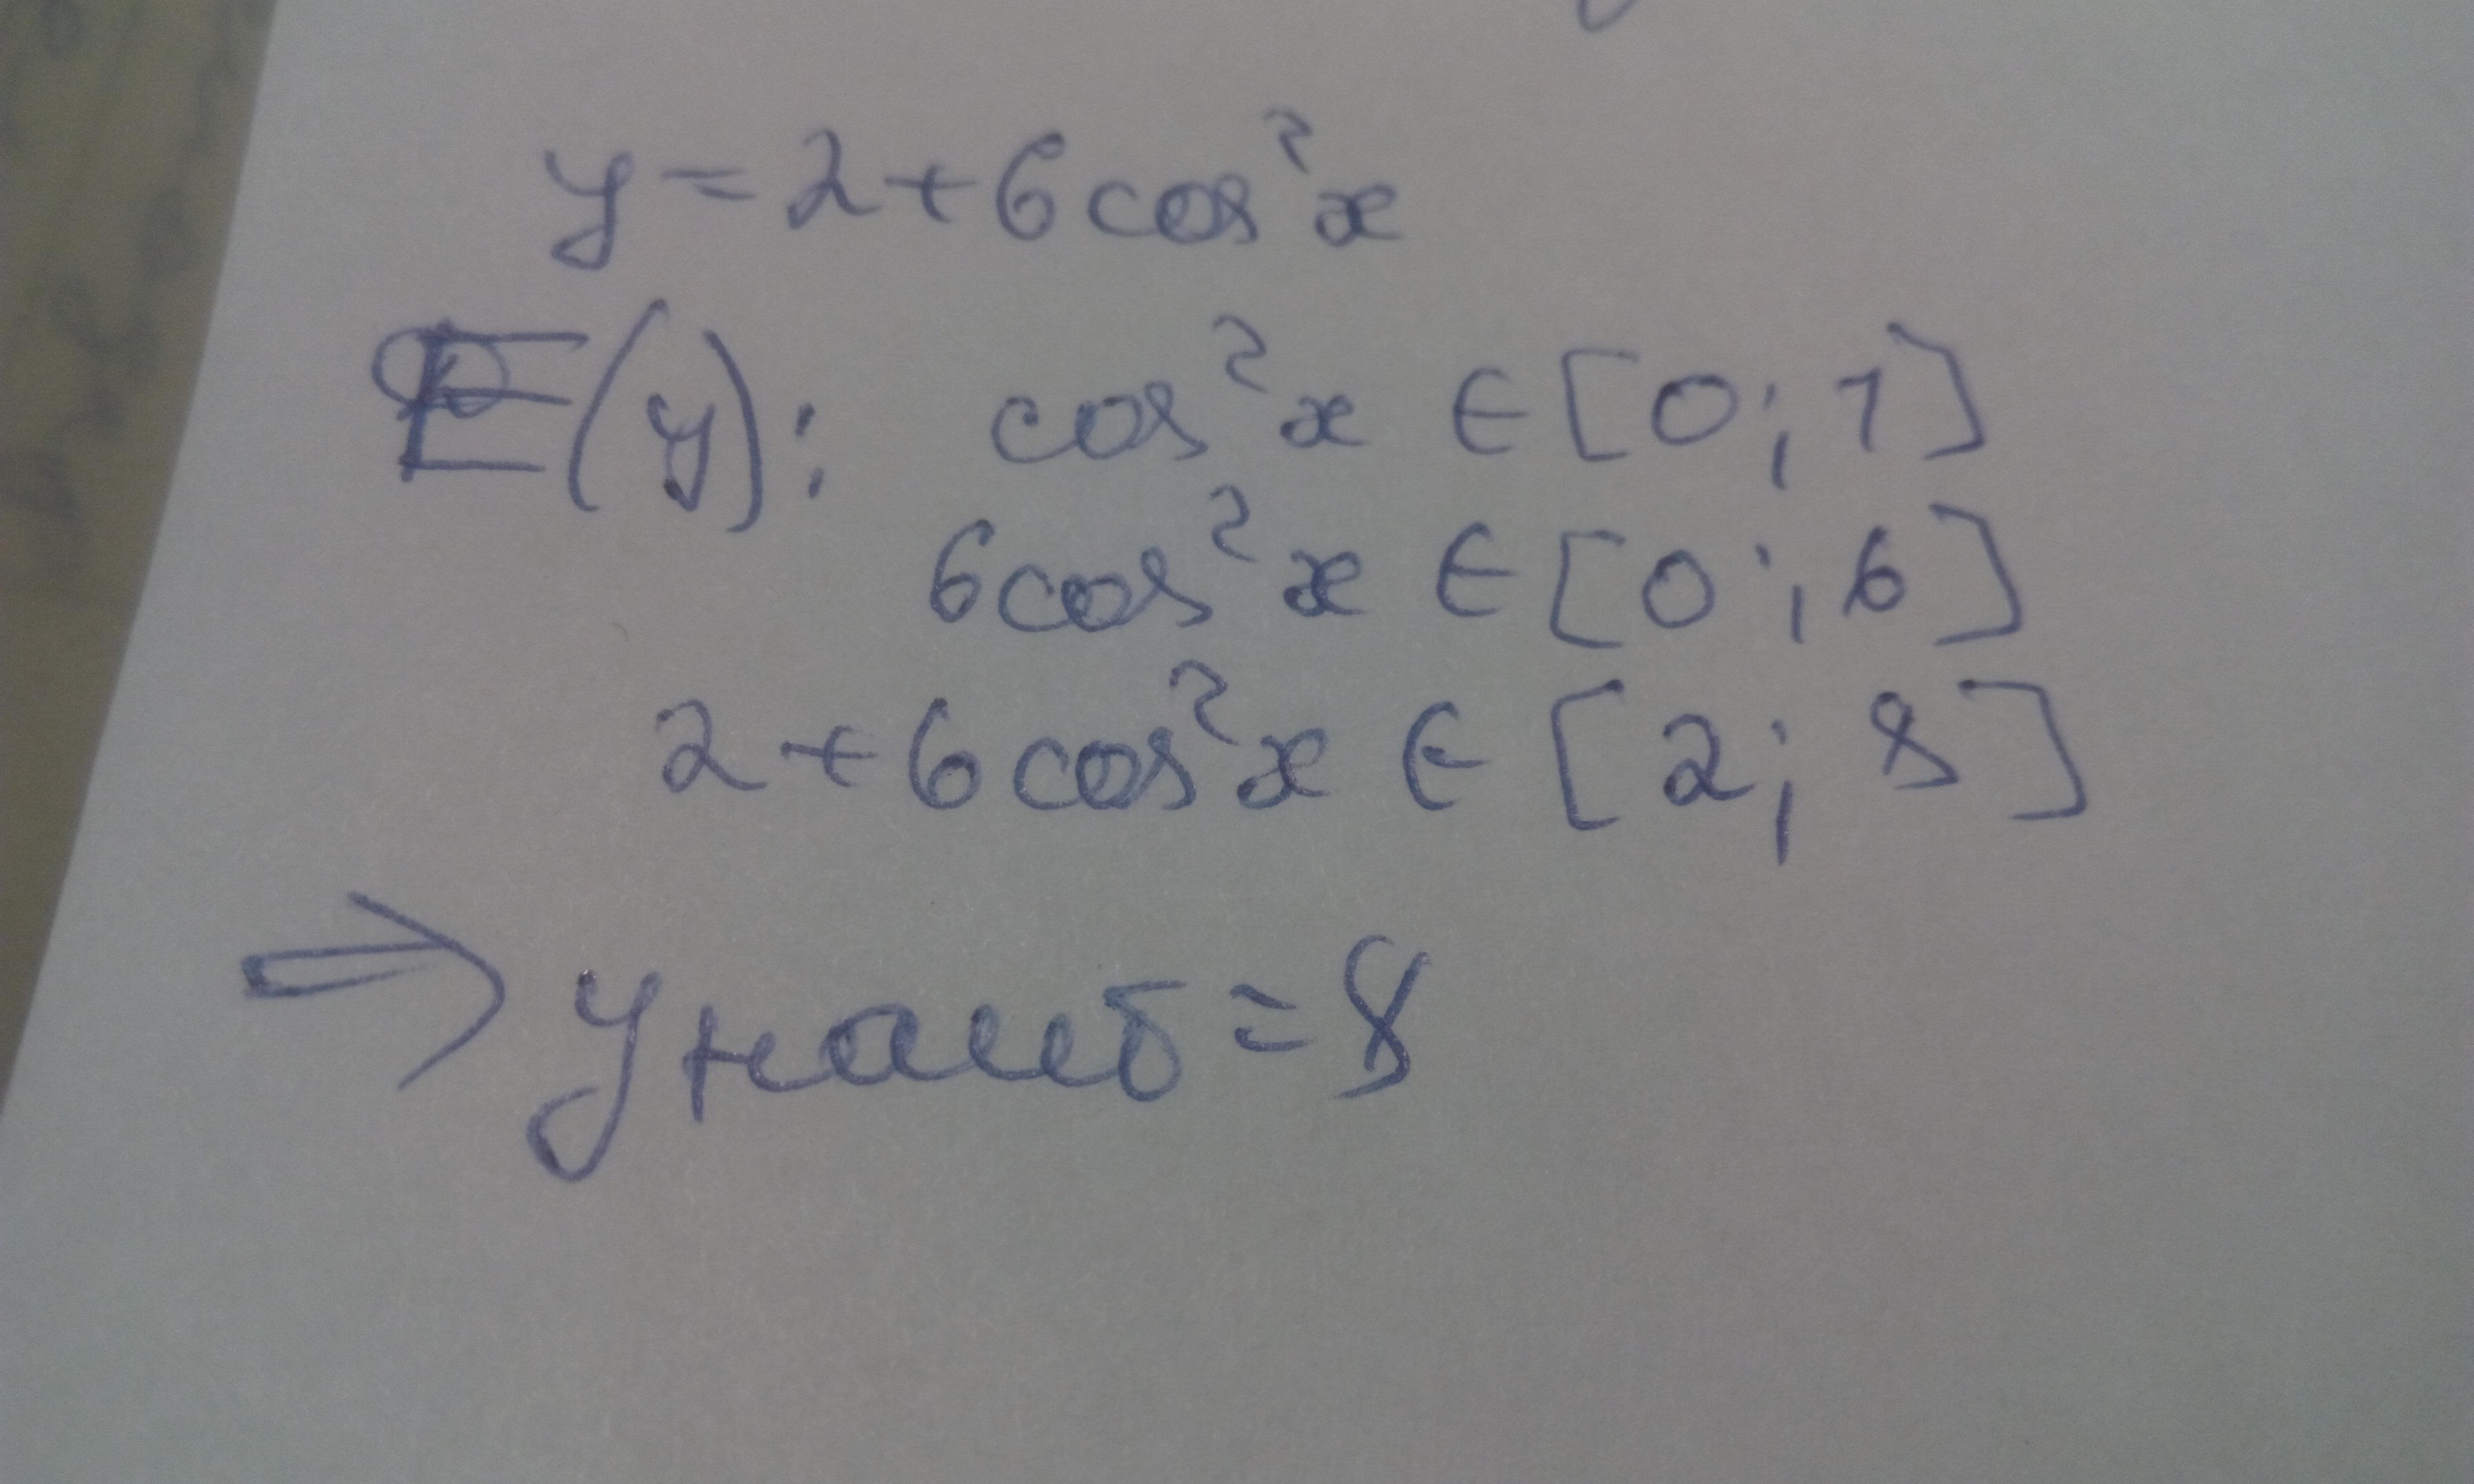 y = 2 + 6 cos²x
E(y): cos²x ∈ [0; 1]
6 cos²x ∈ [0; 6]
2 + 6 cos²x ∈ [2; 8]
⇒ y наиб = 8